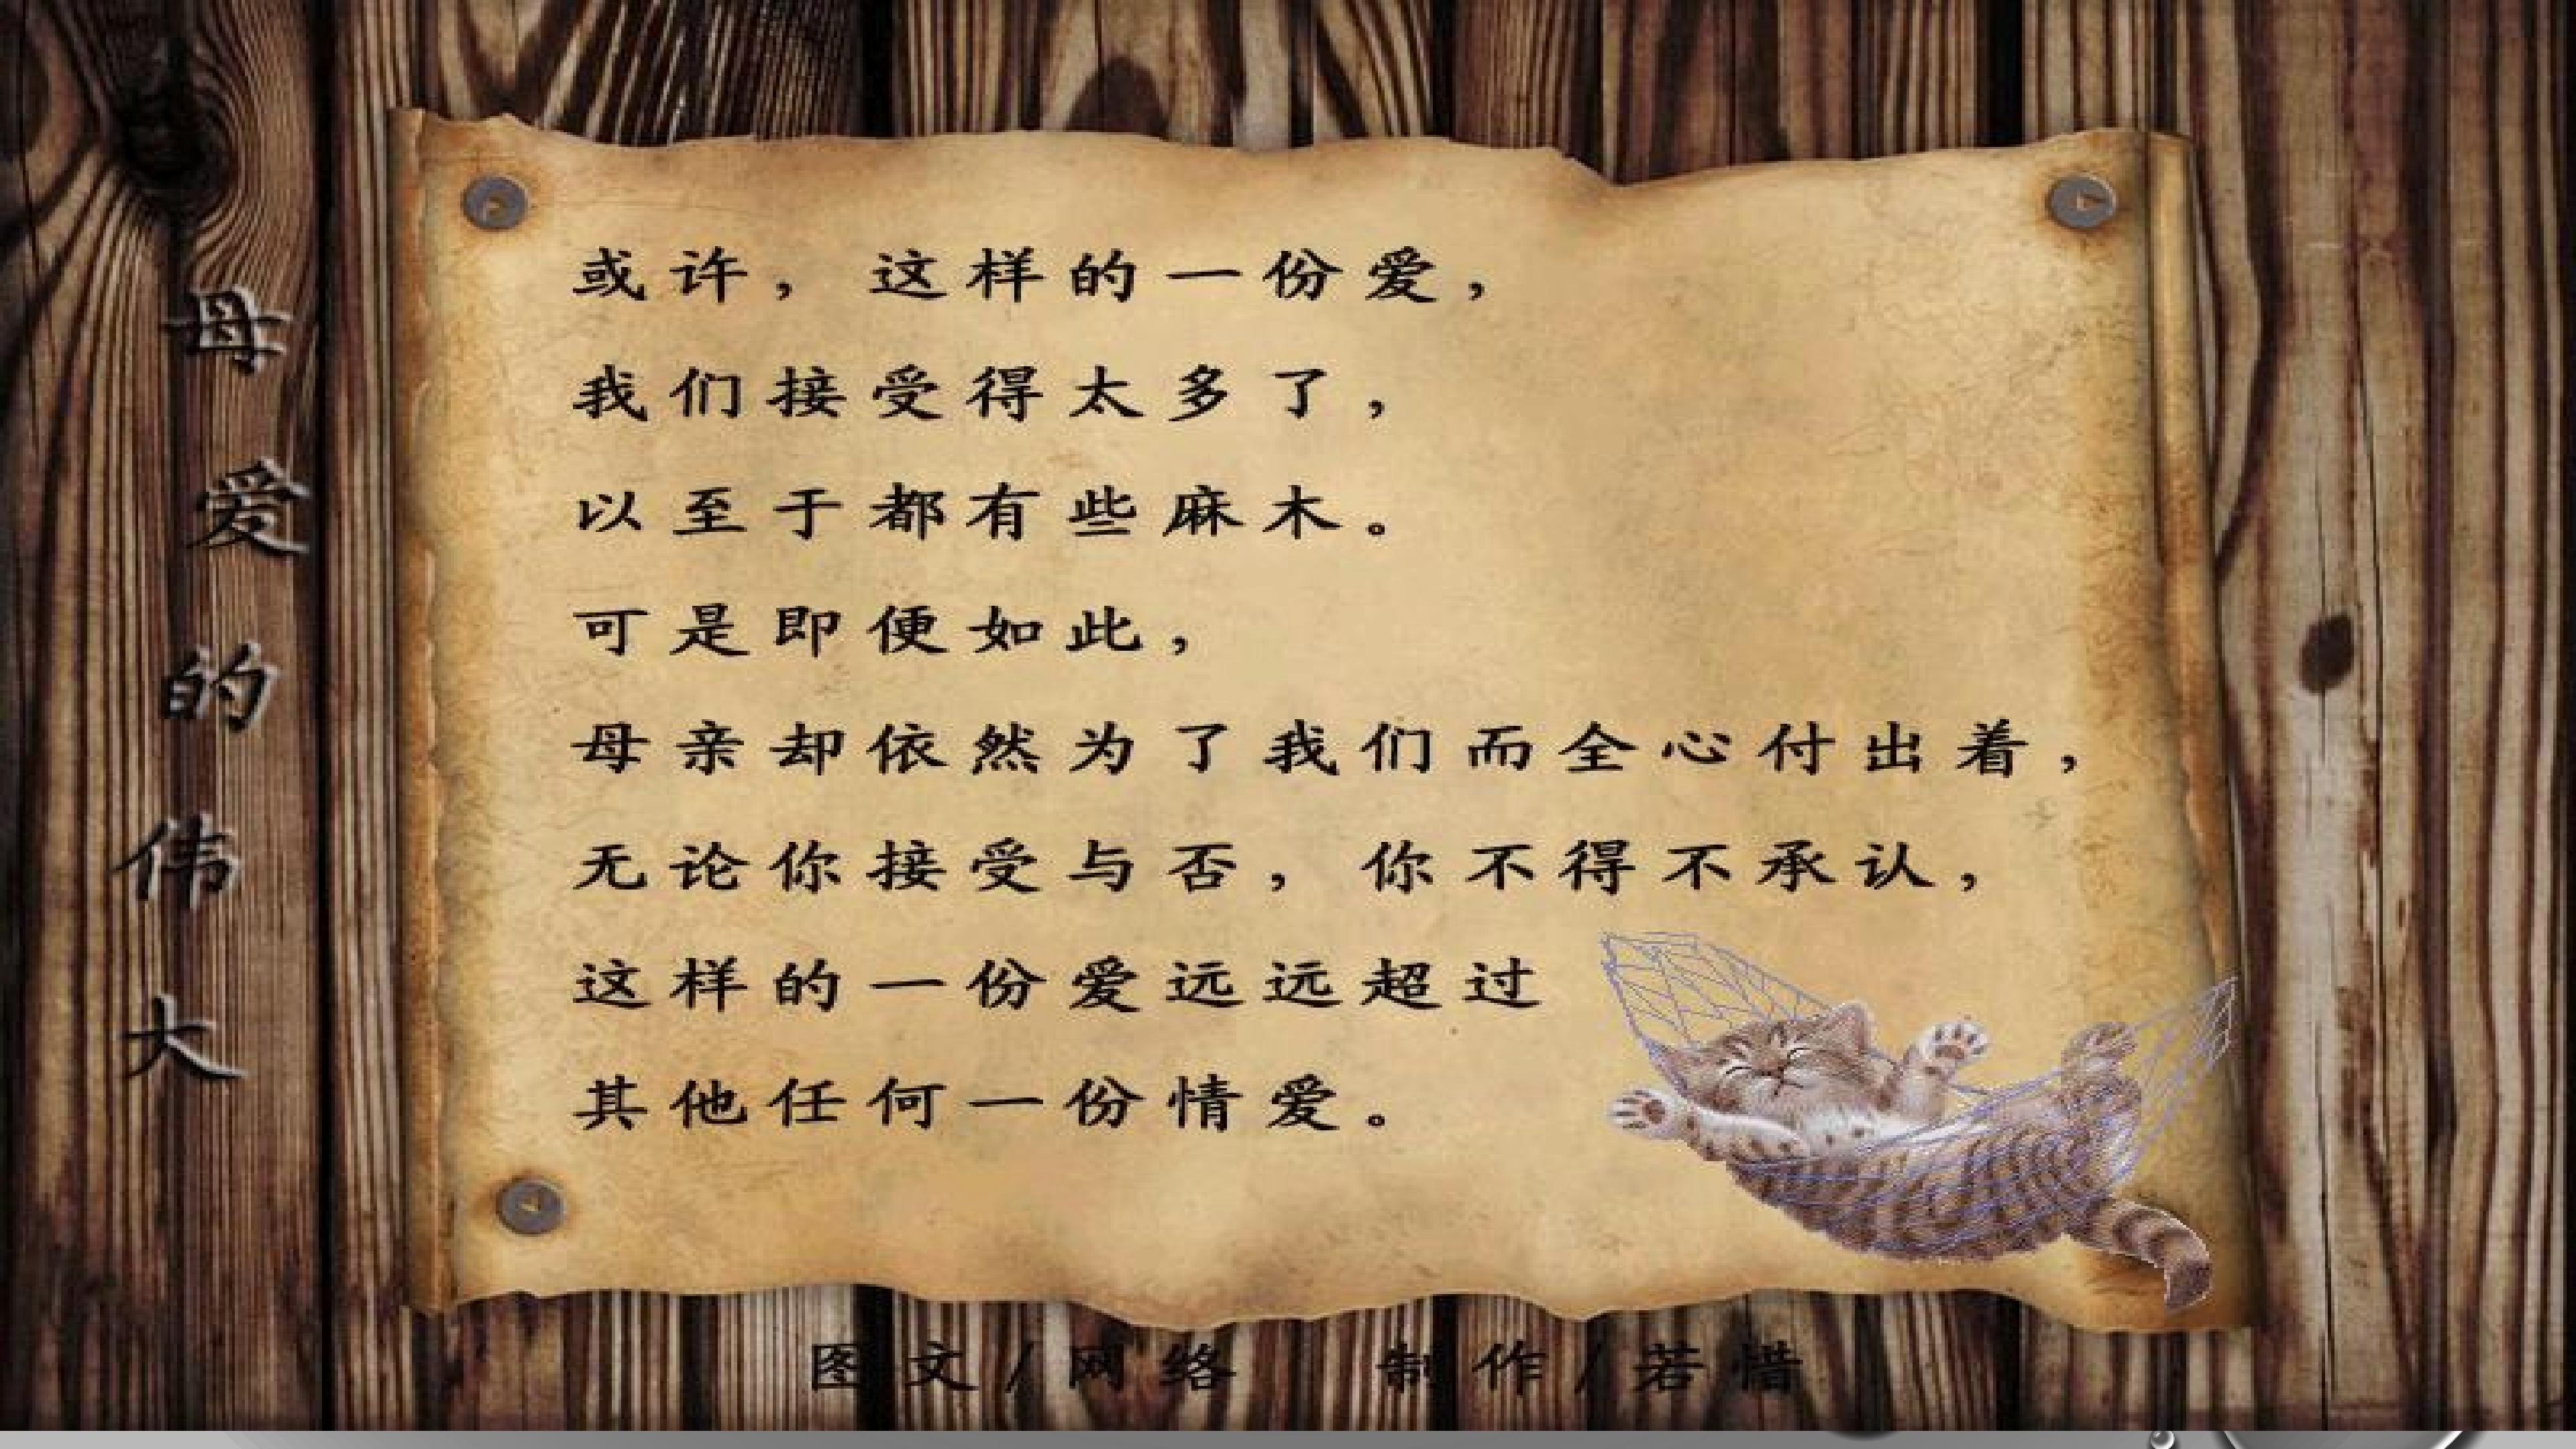 母爱的伟大
或许，这样的一份爱，
我们接受得太多了，
以至于都有些麻木。
可是即便如此，
母亲却依然为了我们而全心付出着，
无论你接受与否，你不得不承认，
这样的一份爱远远超过
其他任何一份情爱。
图文/网络 制作/若惜